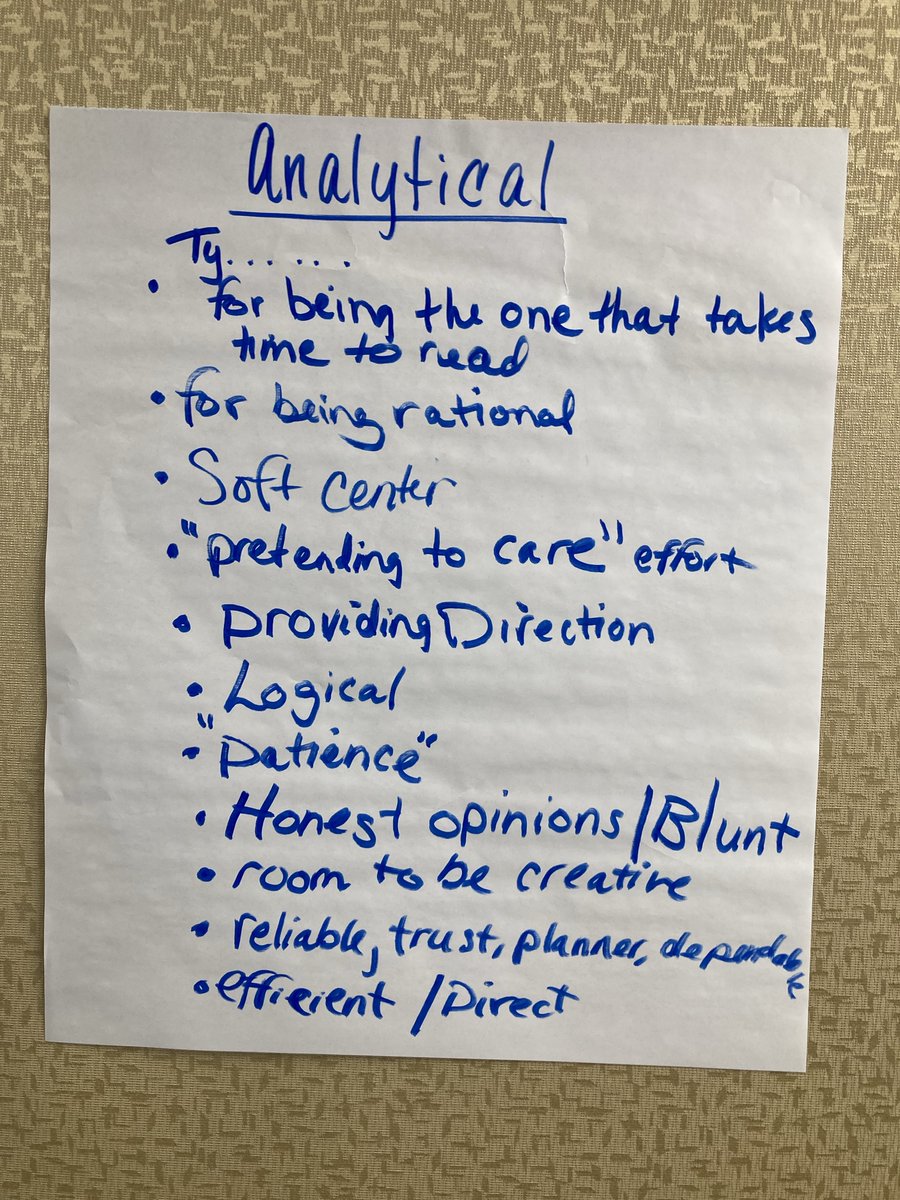 Analytical
Ty......
• for being the one that takes
time to read
• for being rational
• Soft center
• "pretending to care" effort
• providing Direction
• Logical
• "patience"
• Honest opinions/Blunt
• room to be creative
• reliable, trust, planner, dependable
• efficient /Direct